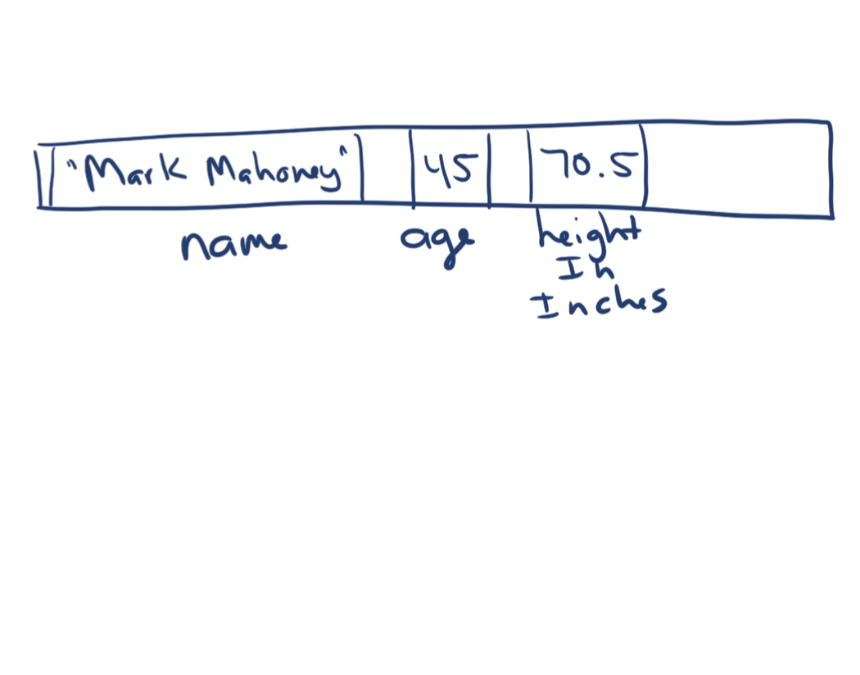 "Mark Mahoney" 45 70.5
name age height
In
Inches